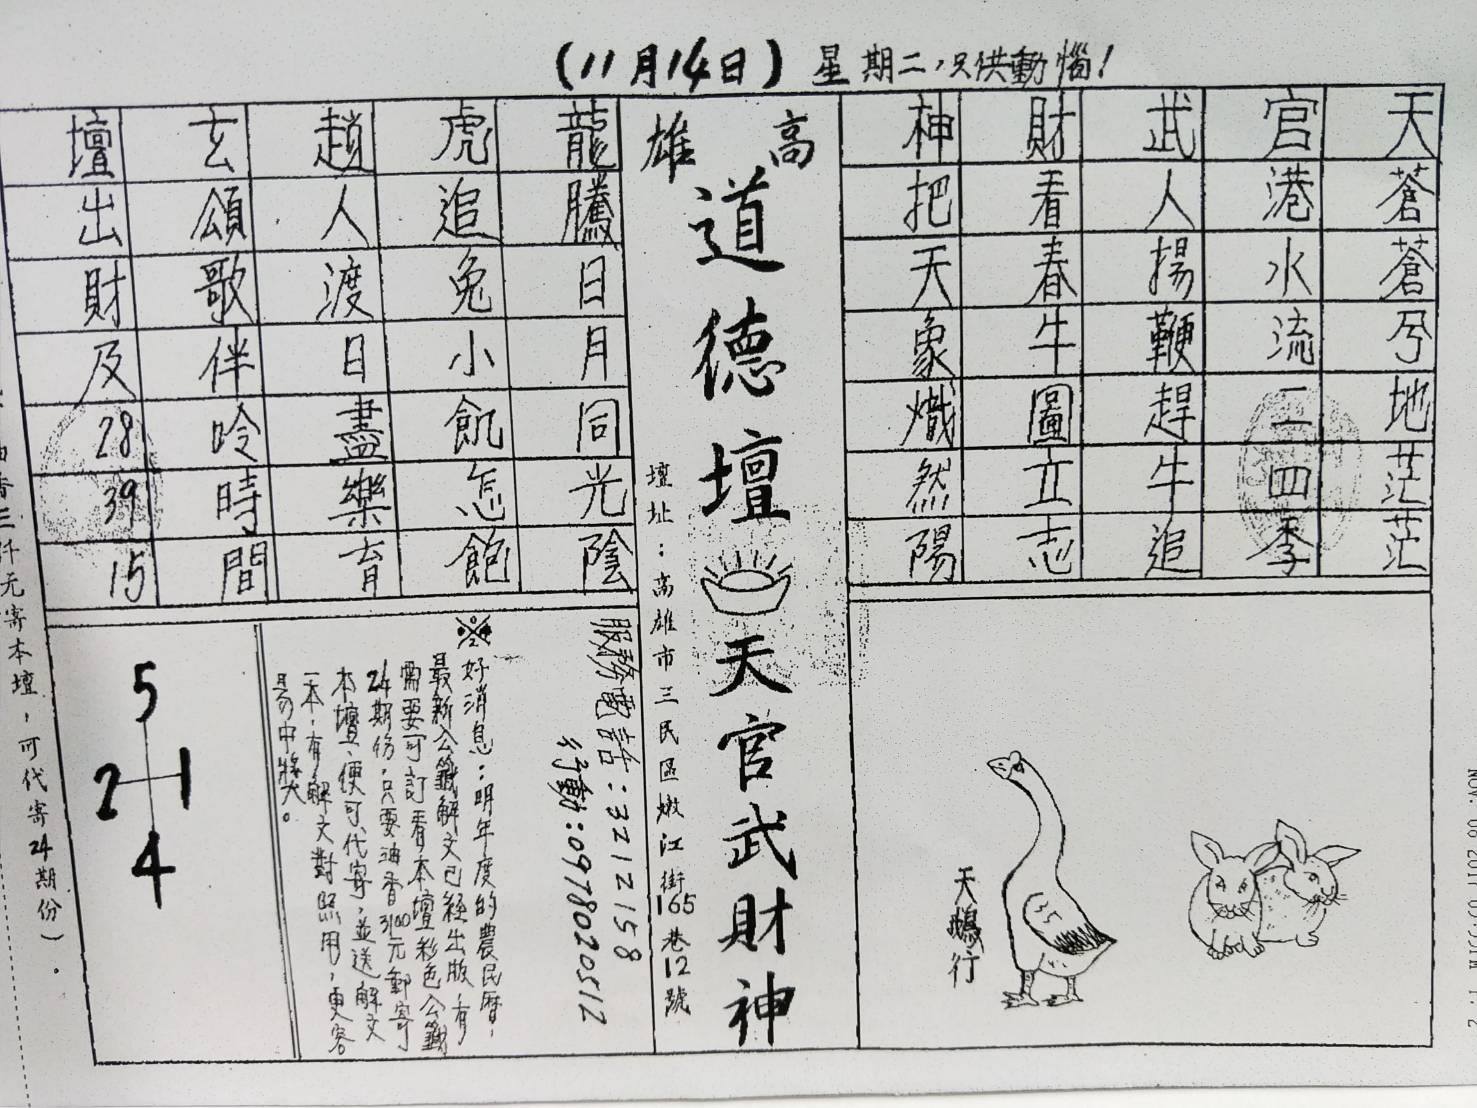 (11月14日)星期二,只供動惱!
天蒼蒼兮地茫茫
官港水流二四季
武人揚鞭趕牛追
財看春牛圖立志
神把天象熾然陽
高雄
道德壇
天官武財神
壇址:高雄市三民區嫩江街165巷12號
龍騰日月同光陰
虎追兔小飢怎飽
趙人渡日盡樂育
玄頌歌伴吟時間
壇出財及283915
天鵝行
35
服務電話:3212158
行動:0978020512
※好消息:明年度的農民曆,
最新公籤解文已經出版,有
需要可訂看本壇彩色公籤
24期份,只要油香3100元郵寄
本壇,便可代寄,並送解文
一本,有解文對照用,更容
易中獎。
5
2 1
4
仟元寄本壇,可代寄24期份)。